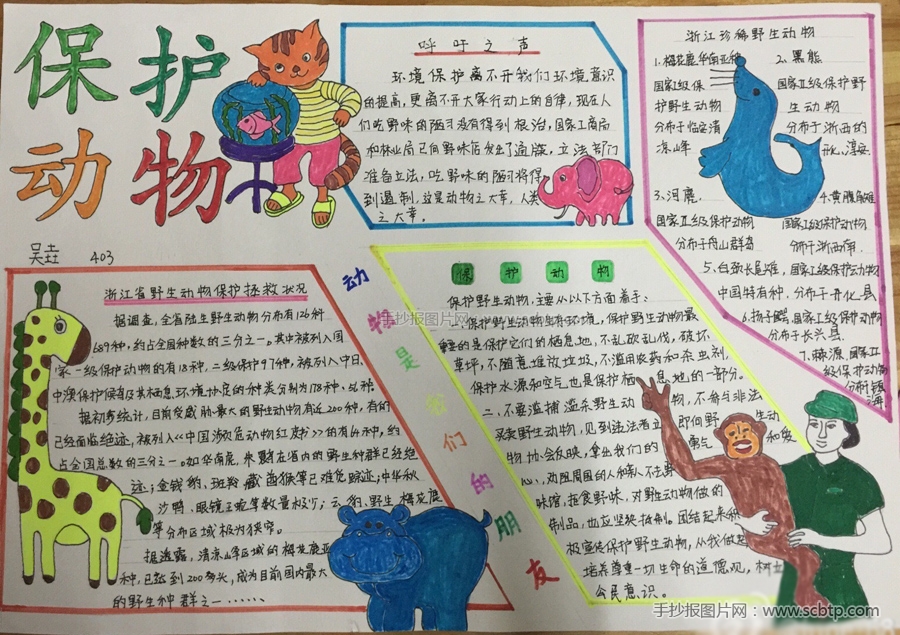 保护
动物
吴垚 403
呼吁之声
环境保护离不开我们环境意识
的提高,更离不开大家行动上的自律,现在人
们吃野味的陋习没有得到根治,国家工商局
和林业局已向野味店发出了通牒,立法部门
准备立法,吃野味的陋习将得
到遏制,这是动物之大幸,人类
之大幸。
浙江珍稀野生动物
1.梅花鹿华南亚种
国家I级保
护野生动物
分布于临安清
凉峰
2.黑熊
国家II级保护野
生动物
分布于浙西的
开化、淳安.
3.河麂.
国家II级保护动物
分布于舟山群岛
4.黄腹角雉
国家I级保护动物
分布于浙西
5、白颈长尾雉,国家I级保护动物
中国特有种,分布于开化县
6.扬子鳄.国家I级保护动物
分布于长兴县
7、国家II
级保护动物
浙江省野生动物保护拯救状况
据调查,全省陆生野生动物分布有126种
689种,约占全国种数的三分之一。其中被列入国
家一级保护动物的有18种,二级保护97种,被列入中日、
中澳保护候鸟及其栖息环境协定的种类分别为178种、56种。
据初步统计,目前受威胁最大的野生动物有近200种,有的
已经面临绝迹,被列入《中国濒危动物红皮书》的有64种,约
占全国总数的三分之一。如华南虎、朱鹮在省内的野生种群已经绝
迹;金钱豹、斑羚、猕猴等已难觅踪迹;中华秋
沙鸭、眼镜王蛇等数量极少;云豹、野生梅花鹿
等分布区域极为狭窄。
据透露,清凉峰区域的梅花鹿亚
种,已经到200多头,成为目前国内最大
的野生种群之一……
动
物
是
我
们
的
朋
友
保护动物
保护野生动物,主要从以下方面着手:
一、保护野生动物生存环境,保护野生动物最
重要的是保护它们的栖息地,不乱砍乱伐,破坏
草坪,不随意堆放垃圾,不滥用农药和杀虫剂,
保护水源和空气也是保护栖息地的一部分。
二、不要滥捕滥杀野生动物,不参与非法
买卖野生动物,见到违法者立即向野生动
物协会反映,拿出我们的勇气和爱
心,动阻周围的人和亲人不去野
味馆,拒食野味,对野生动物做的
制品,也应坚决抵制。团结起来积
极宣传保护野生动物,从我做起
培养尊重一切生命的道德观,树立
公民意识。
手抄报图片网
手抄报图片网:www.scbtp.com